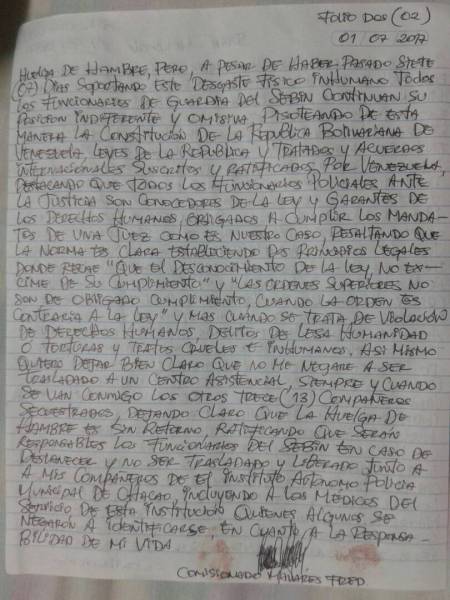 FOLIO DOS (02)
01 07 2017
HUELGA DE HAMBRE, PERO, A PESAR DE HABER PASADO SIETE
(07) DIAS SOPORTANDO ESTE DESGASTE FISICO INHUMANO TODOS
LOS FUNCIONARIOS DE GUARDIA DEL SEBIN CONTINUAN SU
POSICION INDIFERENTE Y OMISIVA, PISOTEANDO DE ESTA
MANERA LA CONSTITUCION DE LA REPUBLICA BOLIVARIANA DE
VENEZUELA, LEYES DE LA REPUBLICA Y TRATADOS Y ACUERDOS
INTERNACIONALES SUSCRITOS Y RATIFICADOS POR VENEZUELA,
DESTACANDO QUE TODOS LOS FUNCIONARIOS POLICIALES ANTE
LA JUSTICIA SON CONOCEDORES DE LA LEY Y GARANTES DE
LOS DERECHOS HUMANOS, OBLIGADOS A CUMPLIR LOS MANDA-
TOS DE UNA JUEZ COMO ES NUESTRO CASO, RESALTANDO QUE
LA NORMA ES CLARA ESTABLECIENDO DOS PRINCIPIOS LEGALES
DONDE REZAE "QUE EL DESCONOCIMIENTO DE LA LEY, NO EX-
CIME DE SU CUMPLIMIENTO" Y "LAS ORDENES SUPERIORES NO
SON DE OBLIGADO CUMPLIMIENTO, CUANDO LA ORDEN ES
CONTRARIA A LA LEY" Y MAS CUANDO SE TRATA DE VIOLACION
DE DERECHOS HUMANOS, DELITOS DE LESA HUMANIDAD
O TORTURAS Y TRATOS CRUELES E INHUMANOS, ASI MISMO
QUIERO DEJAR BIEN CLARO QUE NO ME NEGARE A SER
TRASLADADO A UN CENTRO ASISTENCIAL, SIEMPRE Y CUANDO
SE VAN CONMIGO LOS OTROS TRECE (13) COMPAÑEROS
SECUESTRADOS, DEJANDO CLARO QUE LA HUELGA DE
HAMBRE ES SIN RETORNO, RATIFICANDO QUE SERAN
RESPONSABLES LOS FUNCIONARIOS DEL SEBIN EN CASO DE
DESFANECER Y NO SER TRASLADADO Y LIBERADO JUNTO A
A MIS COMPAÑEROS DE EL INSTITUTO AUTONOMO POLICIA
MUNICIPAL DE CHACAO, INCLUYENDO A LOS MEDICOS DEL
SERVICIO DE ESTA INSTITUCION QUIENES ALGUNOS SE
NEGARON A IDENTIFICARSE, EN CUANTO A LA RESPONSA-
BILIDAD DE MI VIDA
COMISIONADO MAVARES FRED